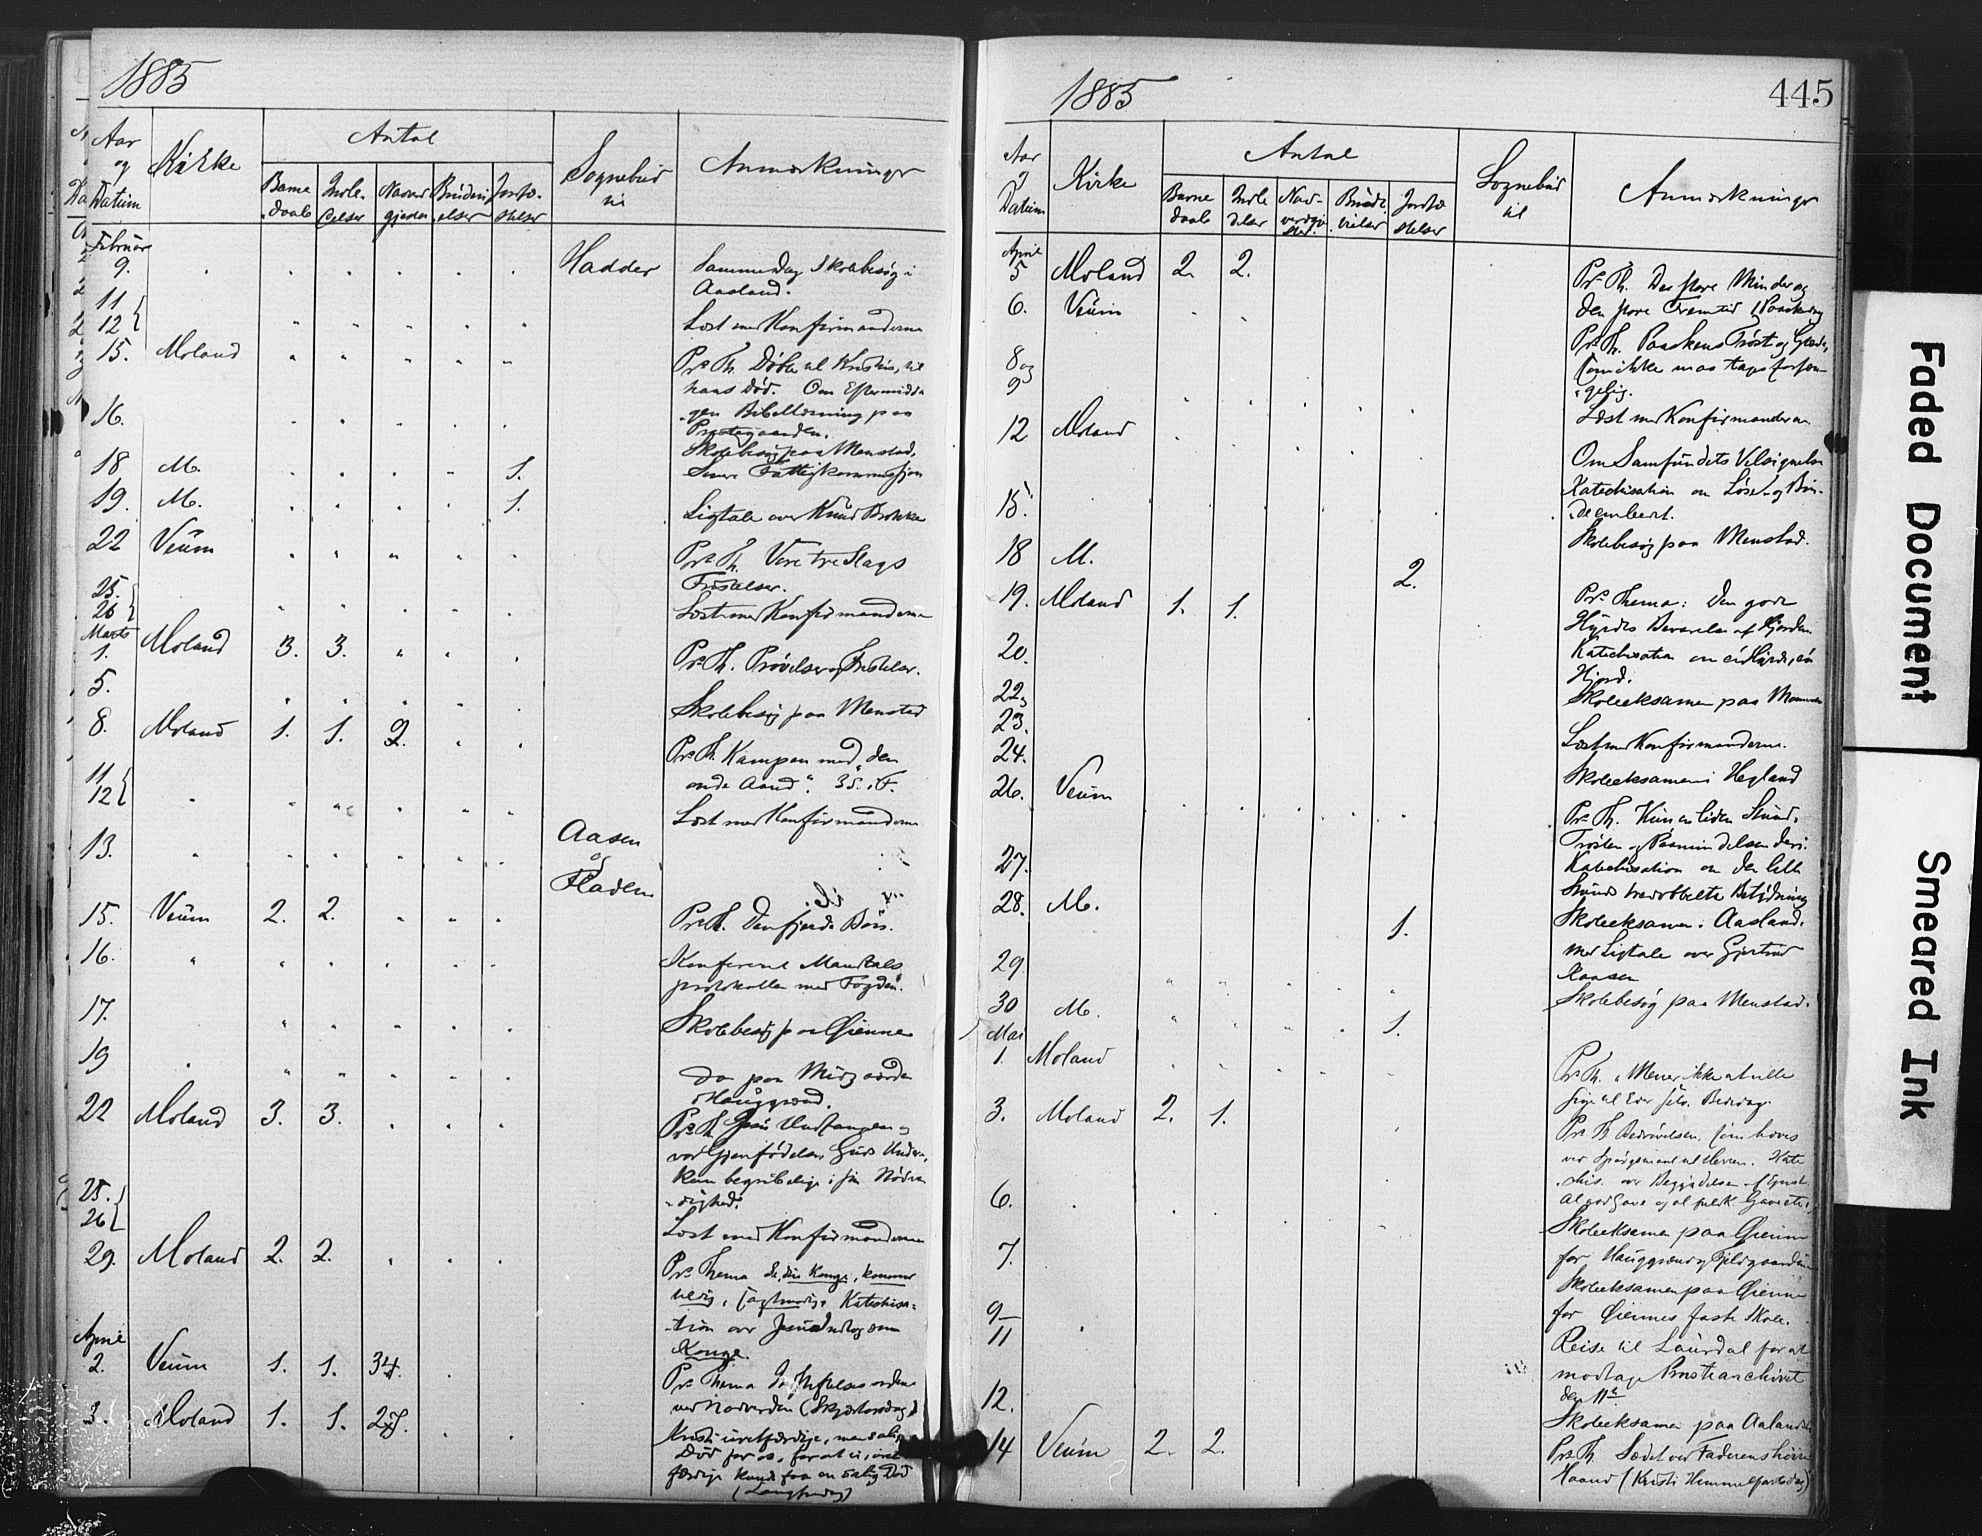 1885
Aar og Datum
Kirke
Antal
Barne daab
Indledelser
Nadver gjester
Brudevielser
Jordfæstelser
Sognebud til
Anmærkninger
Februar
9. Hadder Samme Dag Skolebesøg i
Aasland.
11
12 Læst med Konfirmanderne
15. Moland Pr. Th. Døbte til Kristus, til
hans Død. Om Eftermidda
gen Bibellæsning paa
Prestegaarden.
16. Skolebesøg paa Menstad,
18 M. 1. Fattigkommissjon
19. M. 1. Ligtale over Knud Brokke
22 Veum Pr. Th. Vore tre Slags
Fristelser.
25.
26 Læst med Konfirmanderne
Marts
1. Moland 3. 3. Pr. Th. Prøvelser og Fristelser.
5. Skolebesøg paa Menstad
8. Moland 1. 1. 2. Pr. Th. Kampen med "den
onde Aand". 3 S. i F.
11
12 Læst med Konfirmanderne
13. Aasen
og
Fladen
15. Veum 2. 2. Pr. Th. Den fjerde Bøn.
16. Konfereret Mandtals
protokollen med Fogden.
17. Skolebesøg paa Øiennes
19 Do paa Midgarden
Hauggrænd.
22 Moland 3. 3. Pr. Th. Jesu Undfangen og
vor Gjenfødelse Guds Under,
kun begribelige i sin Nødven
dighed.
25.
26 Læst med Konfirmanderne
29. Moland 2. 2. Pr. Thema Se, din Konge, kommer
til dig, sagtmodig. Katechisa-
tion over Jesu Indtog som
Konge.
April
2. Veum 1. 1. 34. Pr. Thema Indstiftelsesordene
ved Nadverden (Skjærtorsdag)
3. Moland 1. 1. 27. Kristi uretfærdige, men salige
Død for os, for at vi, uret
færdige kunde faa en salig Død
(Langfredag)
1885
445
Aar
Datum
Kirke
Antal
Barne daab
Indledelser
Nadverdgjester
Brudevielser
Jordfæstelser
Sognebud til
Anmærkninger
April
5 Moland 2. 2. Pr. Th. Det store Minde og
den store Fremtid 1 Paaskedag
6. Veum Pr. Th. Paaskens Trøst og Glæde,
som ikke maa tages forfæn-
gelig.
8 og
9 Læst med Konfirmanderne
12 Moland Om Samfundets Velsignelse
Katechisation om Løse- og Bin-
deembedet.
15. Skolebesøg paa Menstad.
18 M. 2.
19. Moland 1. 1. Pr. Thema: Den gode
Hyrdes Bevarelse af Hjorden
Katechisation om én Hyrde, én
Hjord.
20. Skoleeksamen paa
22
23. Læst med Konfirmanderne.
24. Skoleeksamen i Høgland
26. Veum Pr. Th. Kun en liden Stund.
Trøsten og Paamindelsen deri.
Katechisation om den lille
Stunds tredobbelte Betydning
27. Skoleeksamen i Aasland.
28. M. 1. Med Ligtale over Gjertrud
Kaasen
29. Skolebesøg paa Menstad.
30 M. 1.
Mai
1. Moland Pr. Th. Mener ikke at ville
sige til Eder selv. Bededag.
3. Moland 2. 1. Pr. Th. Bedrøvelsen, som hæves
ved Spørgsmaal til Herren. Kate
chis. over
al god Gave og al fuldk. Gave etc.
6. Skoleeksamen paa Øienne
for Hauggrænd og Fjeldgaardene
7. Skoleeksamen paa Øienne
for Øiennes faste Skole.
9–
11 Reise til Laurdal for at
modtage Prostiarchivet
den 11te
12. Skoleeksamen paa Aaland
14 Veum 2. 2. Pr. Th. Sædet ved Faderens høire
Haand (Kristi Himmelfartsdag)
Faded Document
Smeared Ink